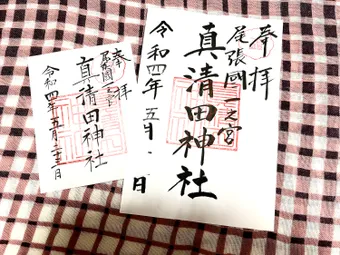 奉拝
尾張國一之宮
真清田神社
令和四年五月 日
奉拝
尾張國一之宮
真清田神社
令和四年五月二十三日